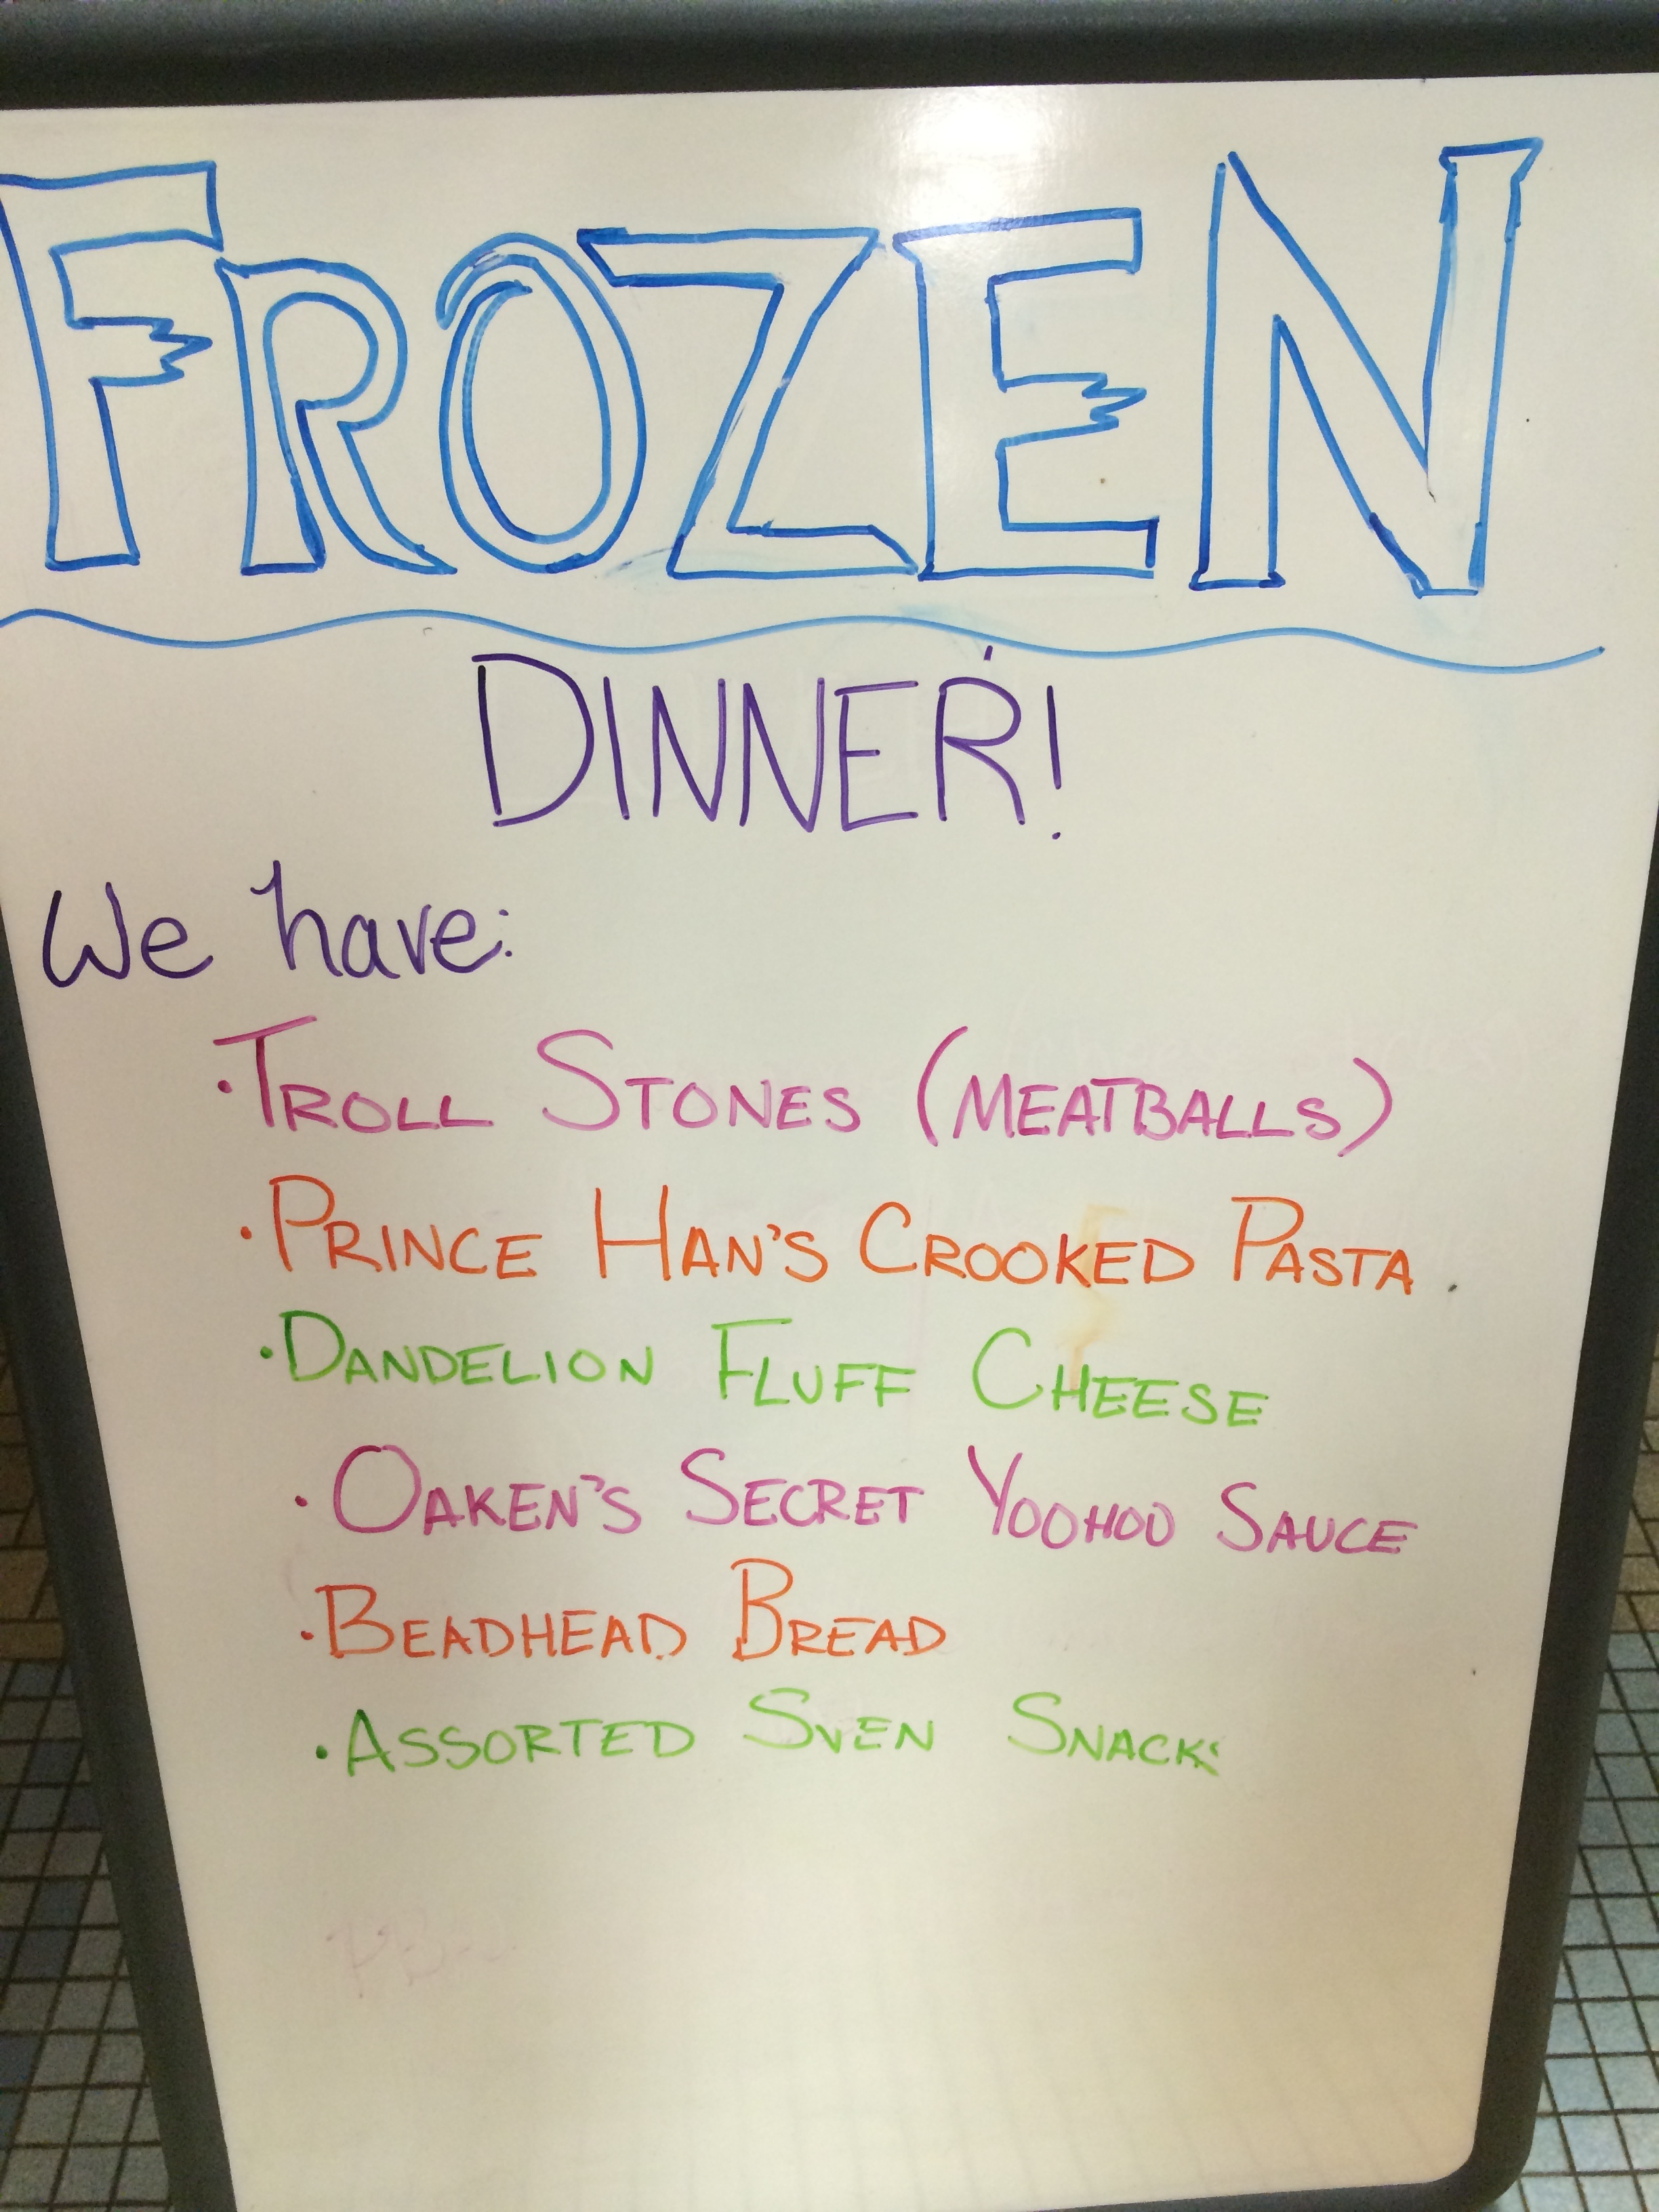 FROZEN
DINNER!
We have:
· TROLL STONES (MEATBALLS)
· PRINCE HAN'S CROOKED PASTA
· DANDELION FLUFF CHEESE
· OAKEN'S SECRET YOOHOO SAUCE
· BEADHEAD BREAD
· ASSORTED SVEN SNACKS